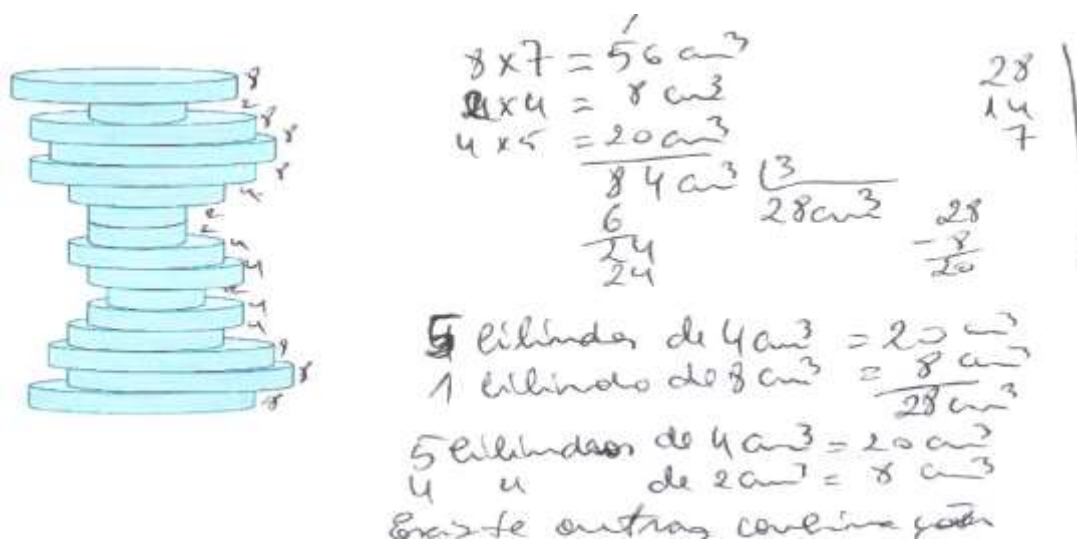 8
2
8
8
8
4
2
2
4
4
2
4
4
8
8
8
8x7 = 56 cm³
2x4 = 8 cm³
4x5 = 20 cm³
84 cm³ 3
6 28cm³
24
24
28
14
7
28
-8
20
5 cilindos de 4 cm³ = 20 cm³
1 cilindo de 8 cm³ = 8 cm³
28 cm³
5 cilindros de 4 cm³ = 20 cm³
4 " de 2 cm³ = 8 cm³
Existe outras combinações